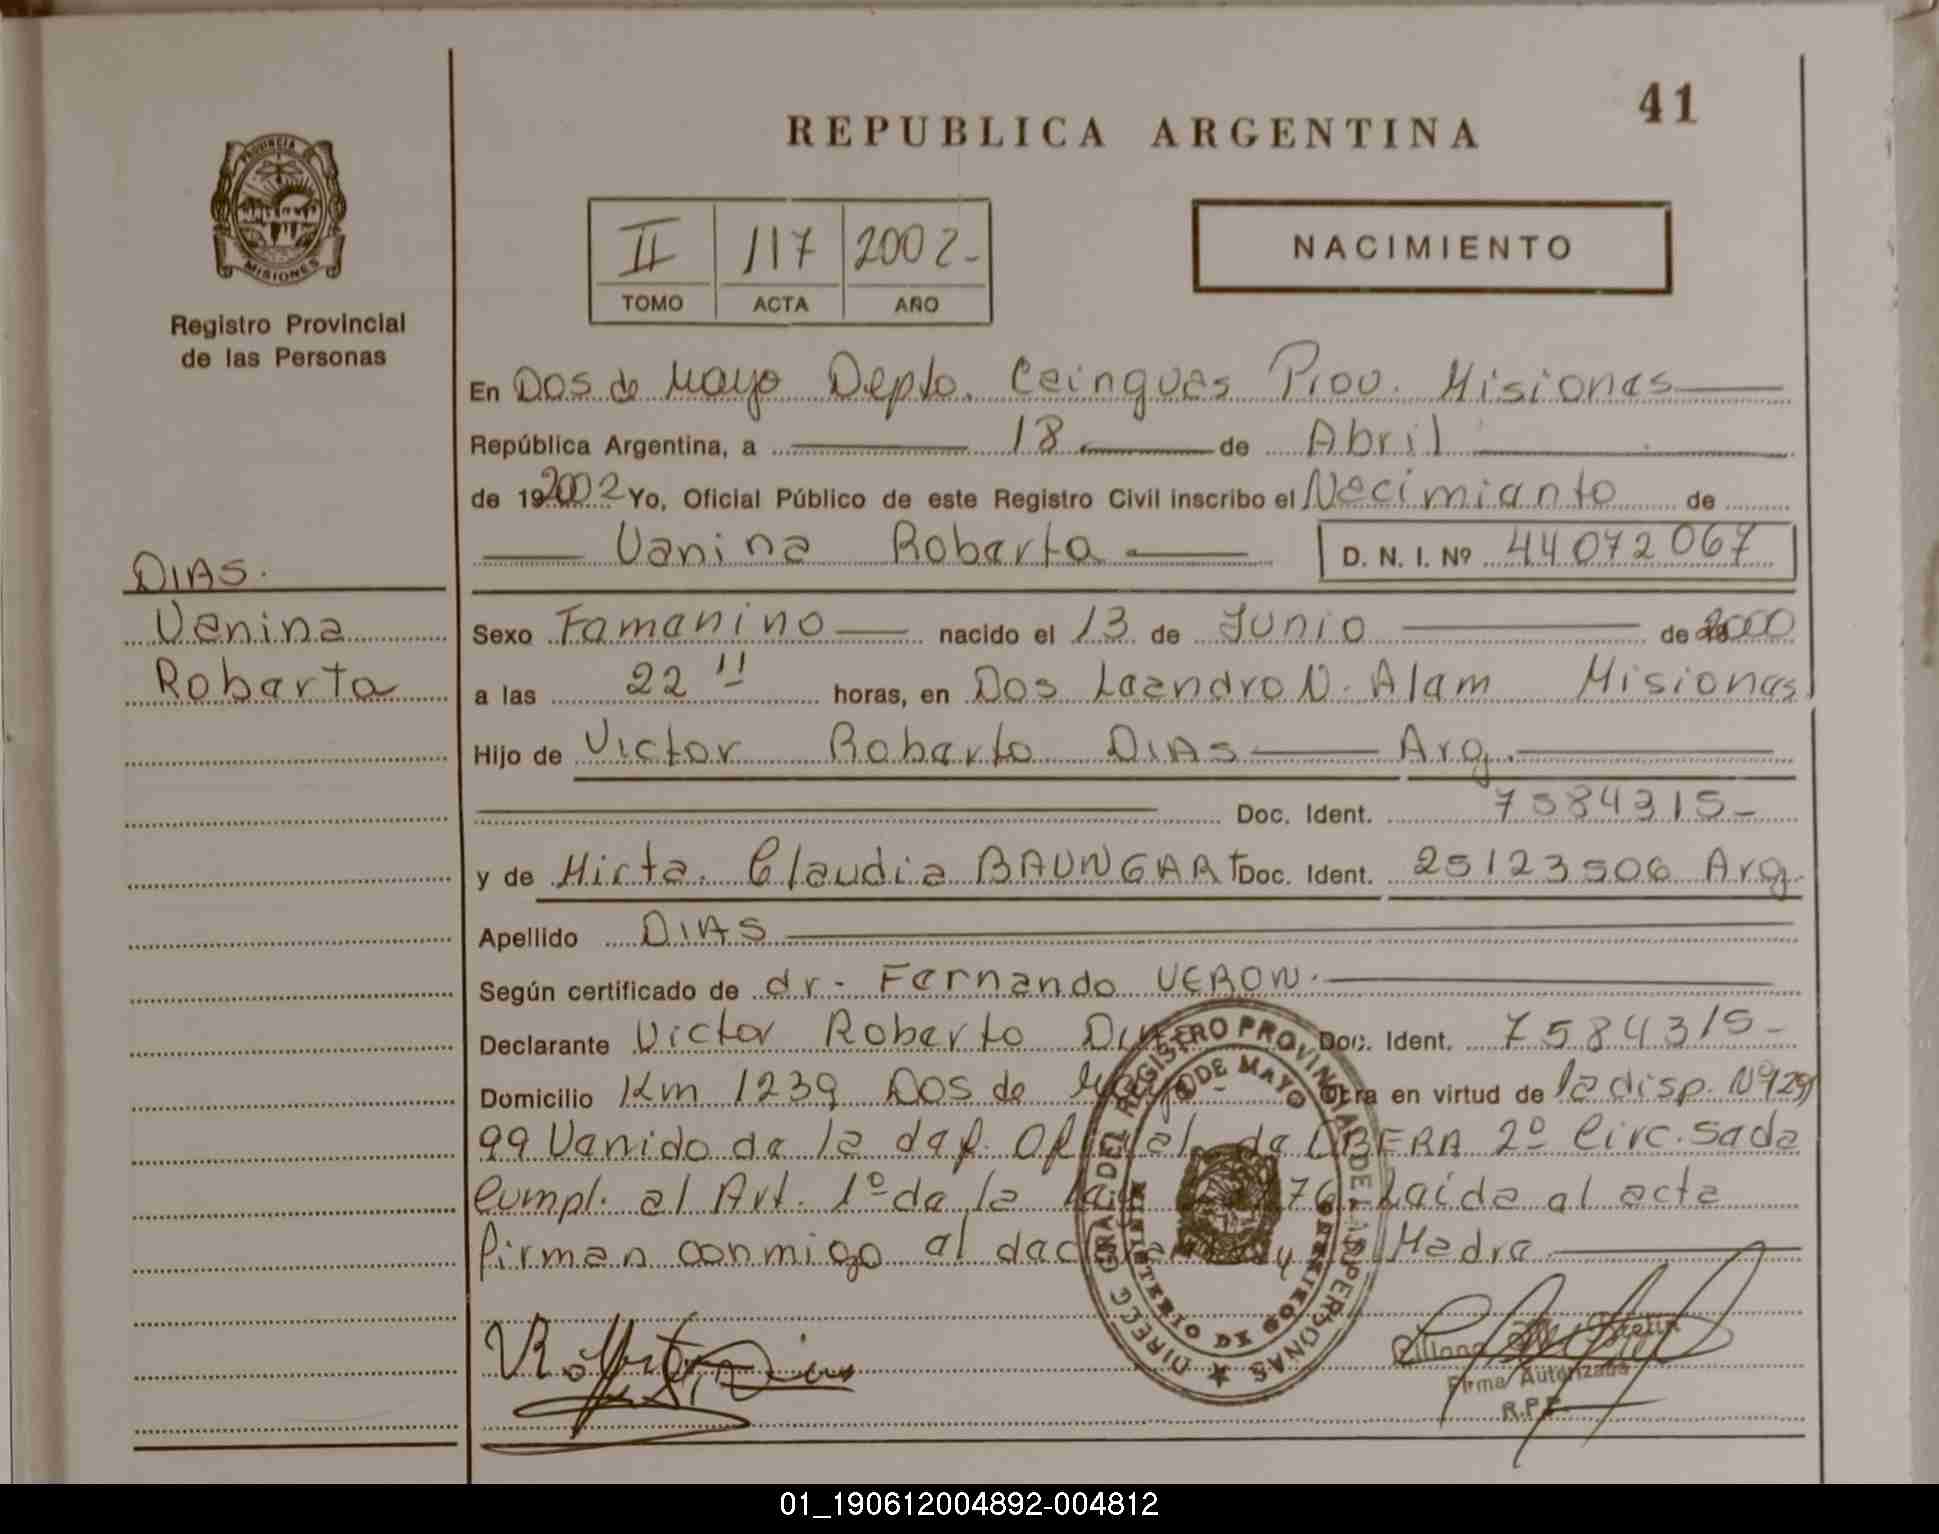 41
REPUBLICA ARGENTINA
PROVINCIA DE
MISIONES
Registro Provincial
de las Personas
II 117 2002-
TOMO ACTA AÑO
NACIMIENTO
En Dos de Mayo Depto. Ceingues Prov. Misiones
República Argentina, a 18 de Abril
de 19 2002 Yo, Oficial Público de este Registro Civil inscribo el Necimianto de
Vanina Robarta D. N. I. Nº 44072067
DIAS.
Vanina
Robarta
Sexo Famanino nacido el 13 de Junio de 2000
a las 22 horas, en Dos Laandro N. Alam Misionas
Hijo de Victor Robarto DIAS Arg.
Doc. Ident. 7584315-
y de Mirta. Claudia BAUNGART Doc. Ident. 25123506 Arg.
Apellido DIAS
Según certificado de dr- Fernando VERON.
Declarante Victor Roberto Doc. Ident. 7584315-
Domicilio Km 1239 Dos de Obra en virtud de la disp. Nº 129/
99 Vanido da la da OBERA 2º Circ. Sada
Cumpl. al Art. 1º da la 76 Laida al acta
firman conmigo al Madra
DIREC GRAL DEL REGISTRO PROVINCIAL DE LAS PERSONAS
2 DE MAYO
MINISTERIO DE GOBIERNO
Firma Autorizada
R.P.P.
01_190612004892-004812